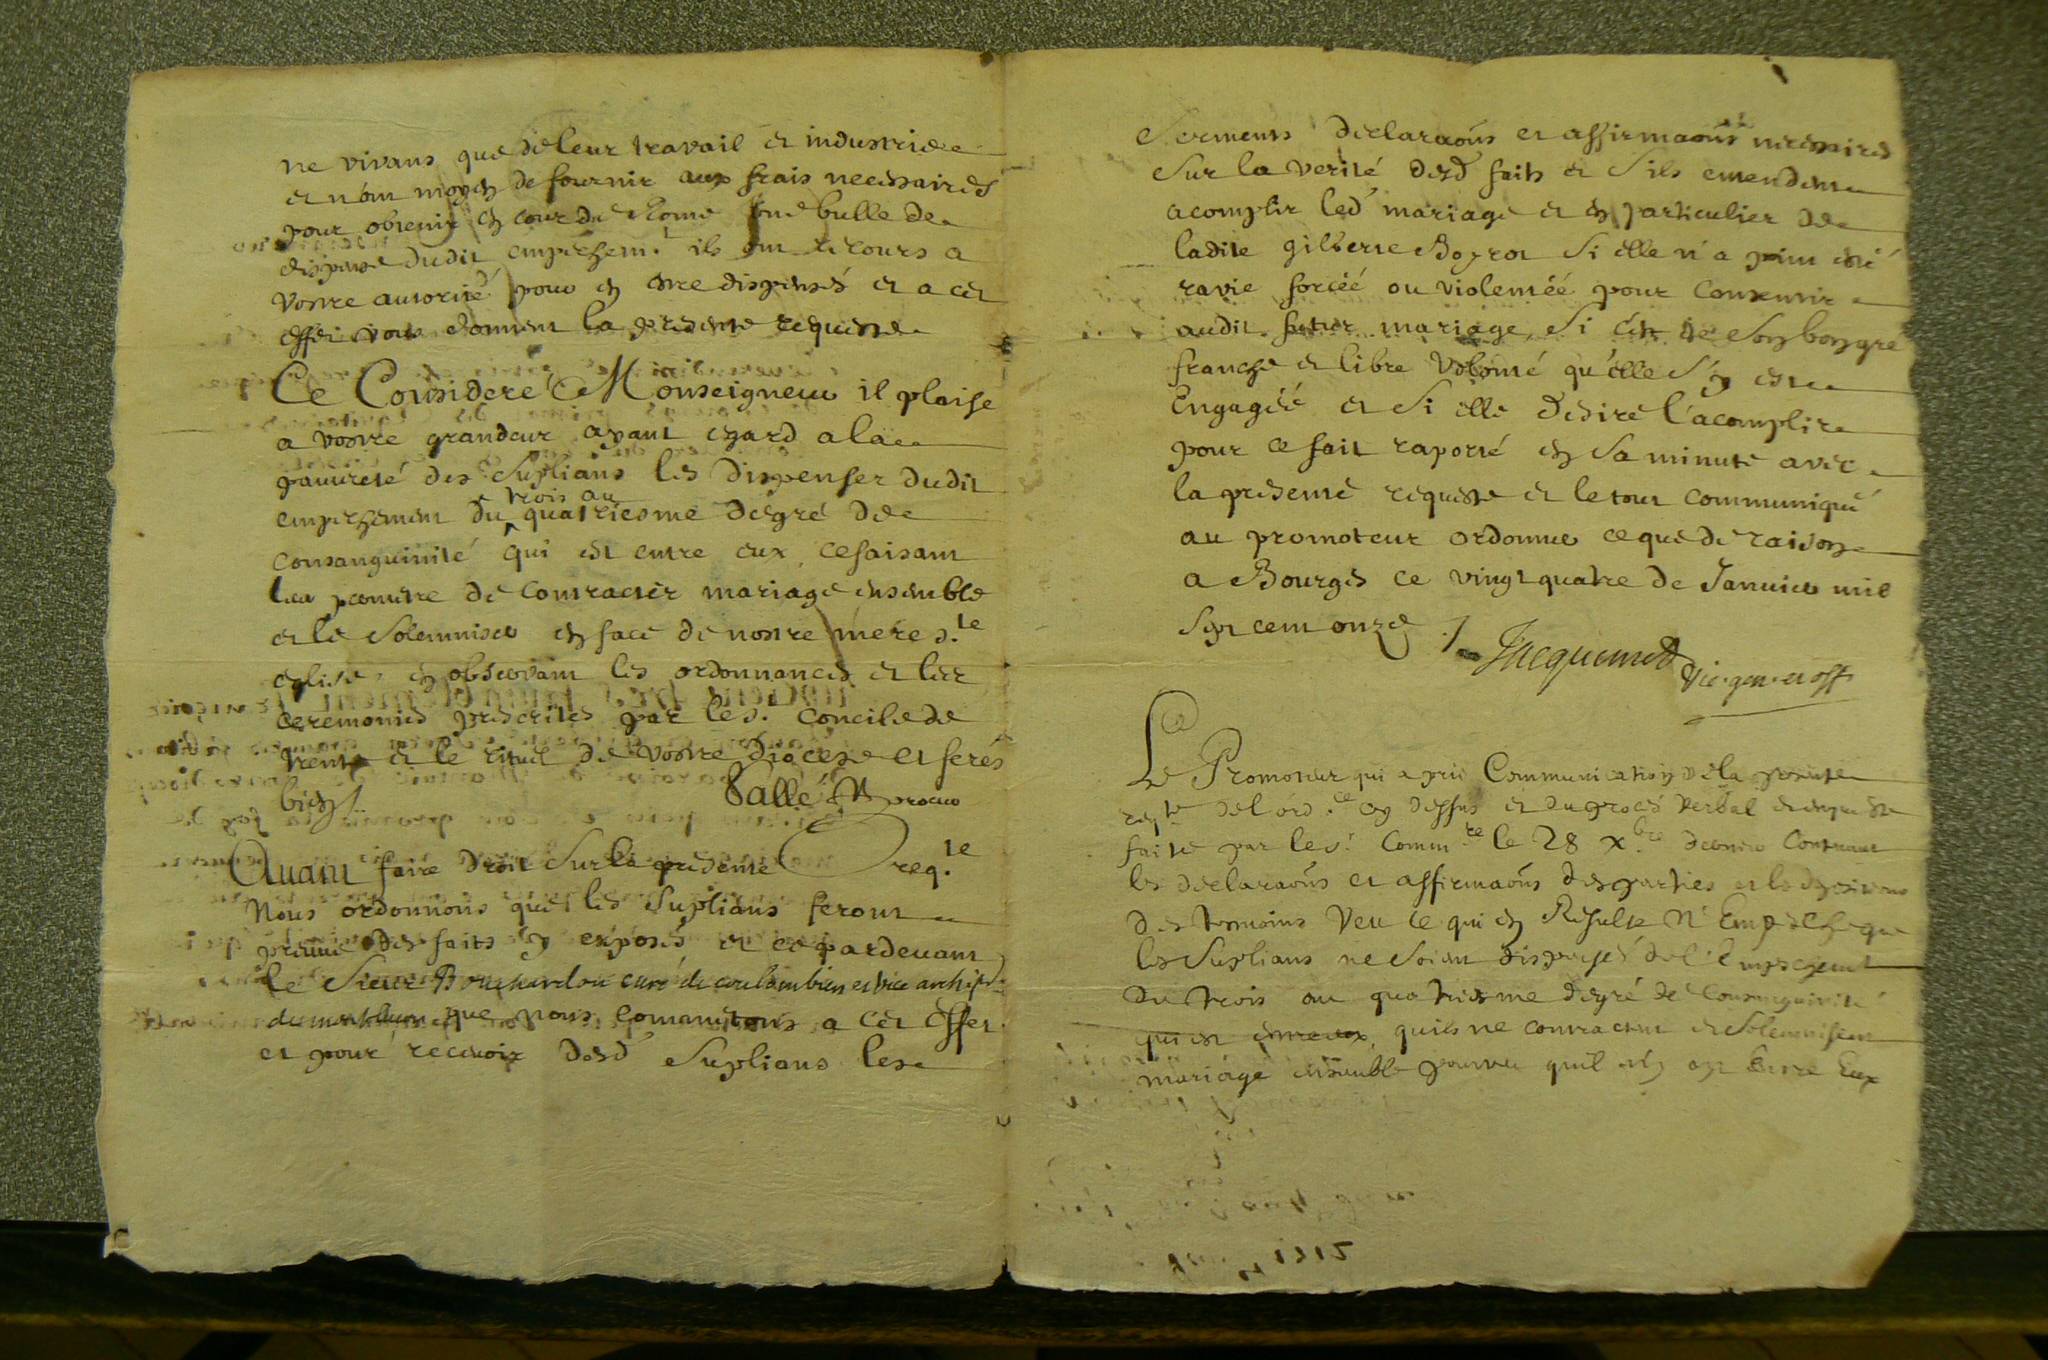 ne vivans que de leur travail et industrie
et n'ont moyen de fournir aux frais necessaires
pour obtenir en cour de Rome une bulle de
dispense dudit empeschem.t ils ont recours a
vostre autorité pour en estre dispensés et a cet
effet vous donnent la presente requeste
Ce Consideré Monseigneur il plaise
a vostre grandeur ayant egard a la
pauvreté des Suplians les dispenser dudit
empeschement du trois au quatriesme degré de
consanguinité qui est entre eux, ce faisant
leur permettre de contracter mariage ensemble
et le solemniser en face de nostre mere s.te
eglise, en observant les ordonnances et les
ceremonies prescrites par le s.t concile de
trente et le rituel de vostre diocese et ferés
bien
Sallé
Avant faire droit sur la presente req.te
Nous ordonnons que les Suplians feront
preuve des faits y exposés et ce pardevant
le Sieur Bouchardon curé de coulombier et vice archip.
de montluçon que nous commettons a cet effet
et pour recevoir desd Suplians les
Serments declaraons et affirmaons necessaires
Sur la verité desd faits et s'ils entendent
acomplir led mariage et en particulier de
ladite gilberte Boyrot Si elle n'a point esté
ravie forcéé ou violentéé pour consentir
audit futur mariage, Si c'est de son bon gré
franche et libre Volonté qu'elle s'y est
Engagéé et si elle desire l'acomplir
pour ce fait raporté en sa minute avec
la presente requeste et le tout communiqué
au promoteur ordonner ce que de raison
a Bourges ce vingt quatre de Janvier mil
sept cent onze ./.
Jacquemet vic. gen. et off
Le Promoteur qui a pris Communication de la presente
req.te de l'ord.ce cy dessus et du procés verbal et enqueste
faite par le s.r Comm.re le 28 x.bre dernier Contenant
les declaraons et affirmaons des parties et les depositions
des temoins Veu ce qui en Resulte N'Empesche que
les Suplians ne soient dispensés de l'Empeschement
du trois au quatriesme degré de Consanguinité
qui est entre eux, qu'ils ne contractent et solemnisent
mariage ensemble pourveu qu'il n'y ayt Entre Eux